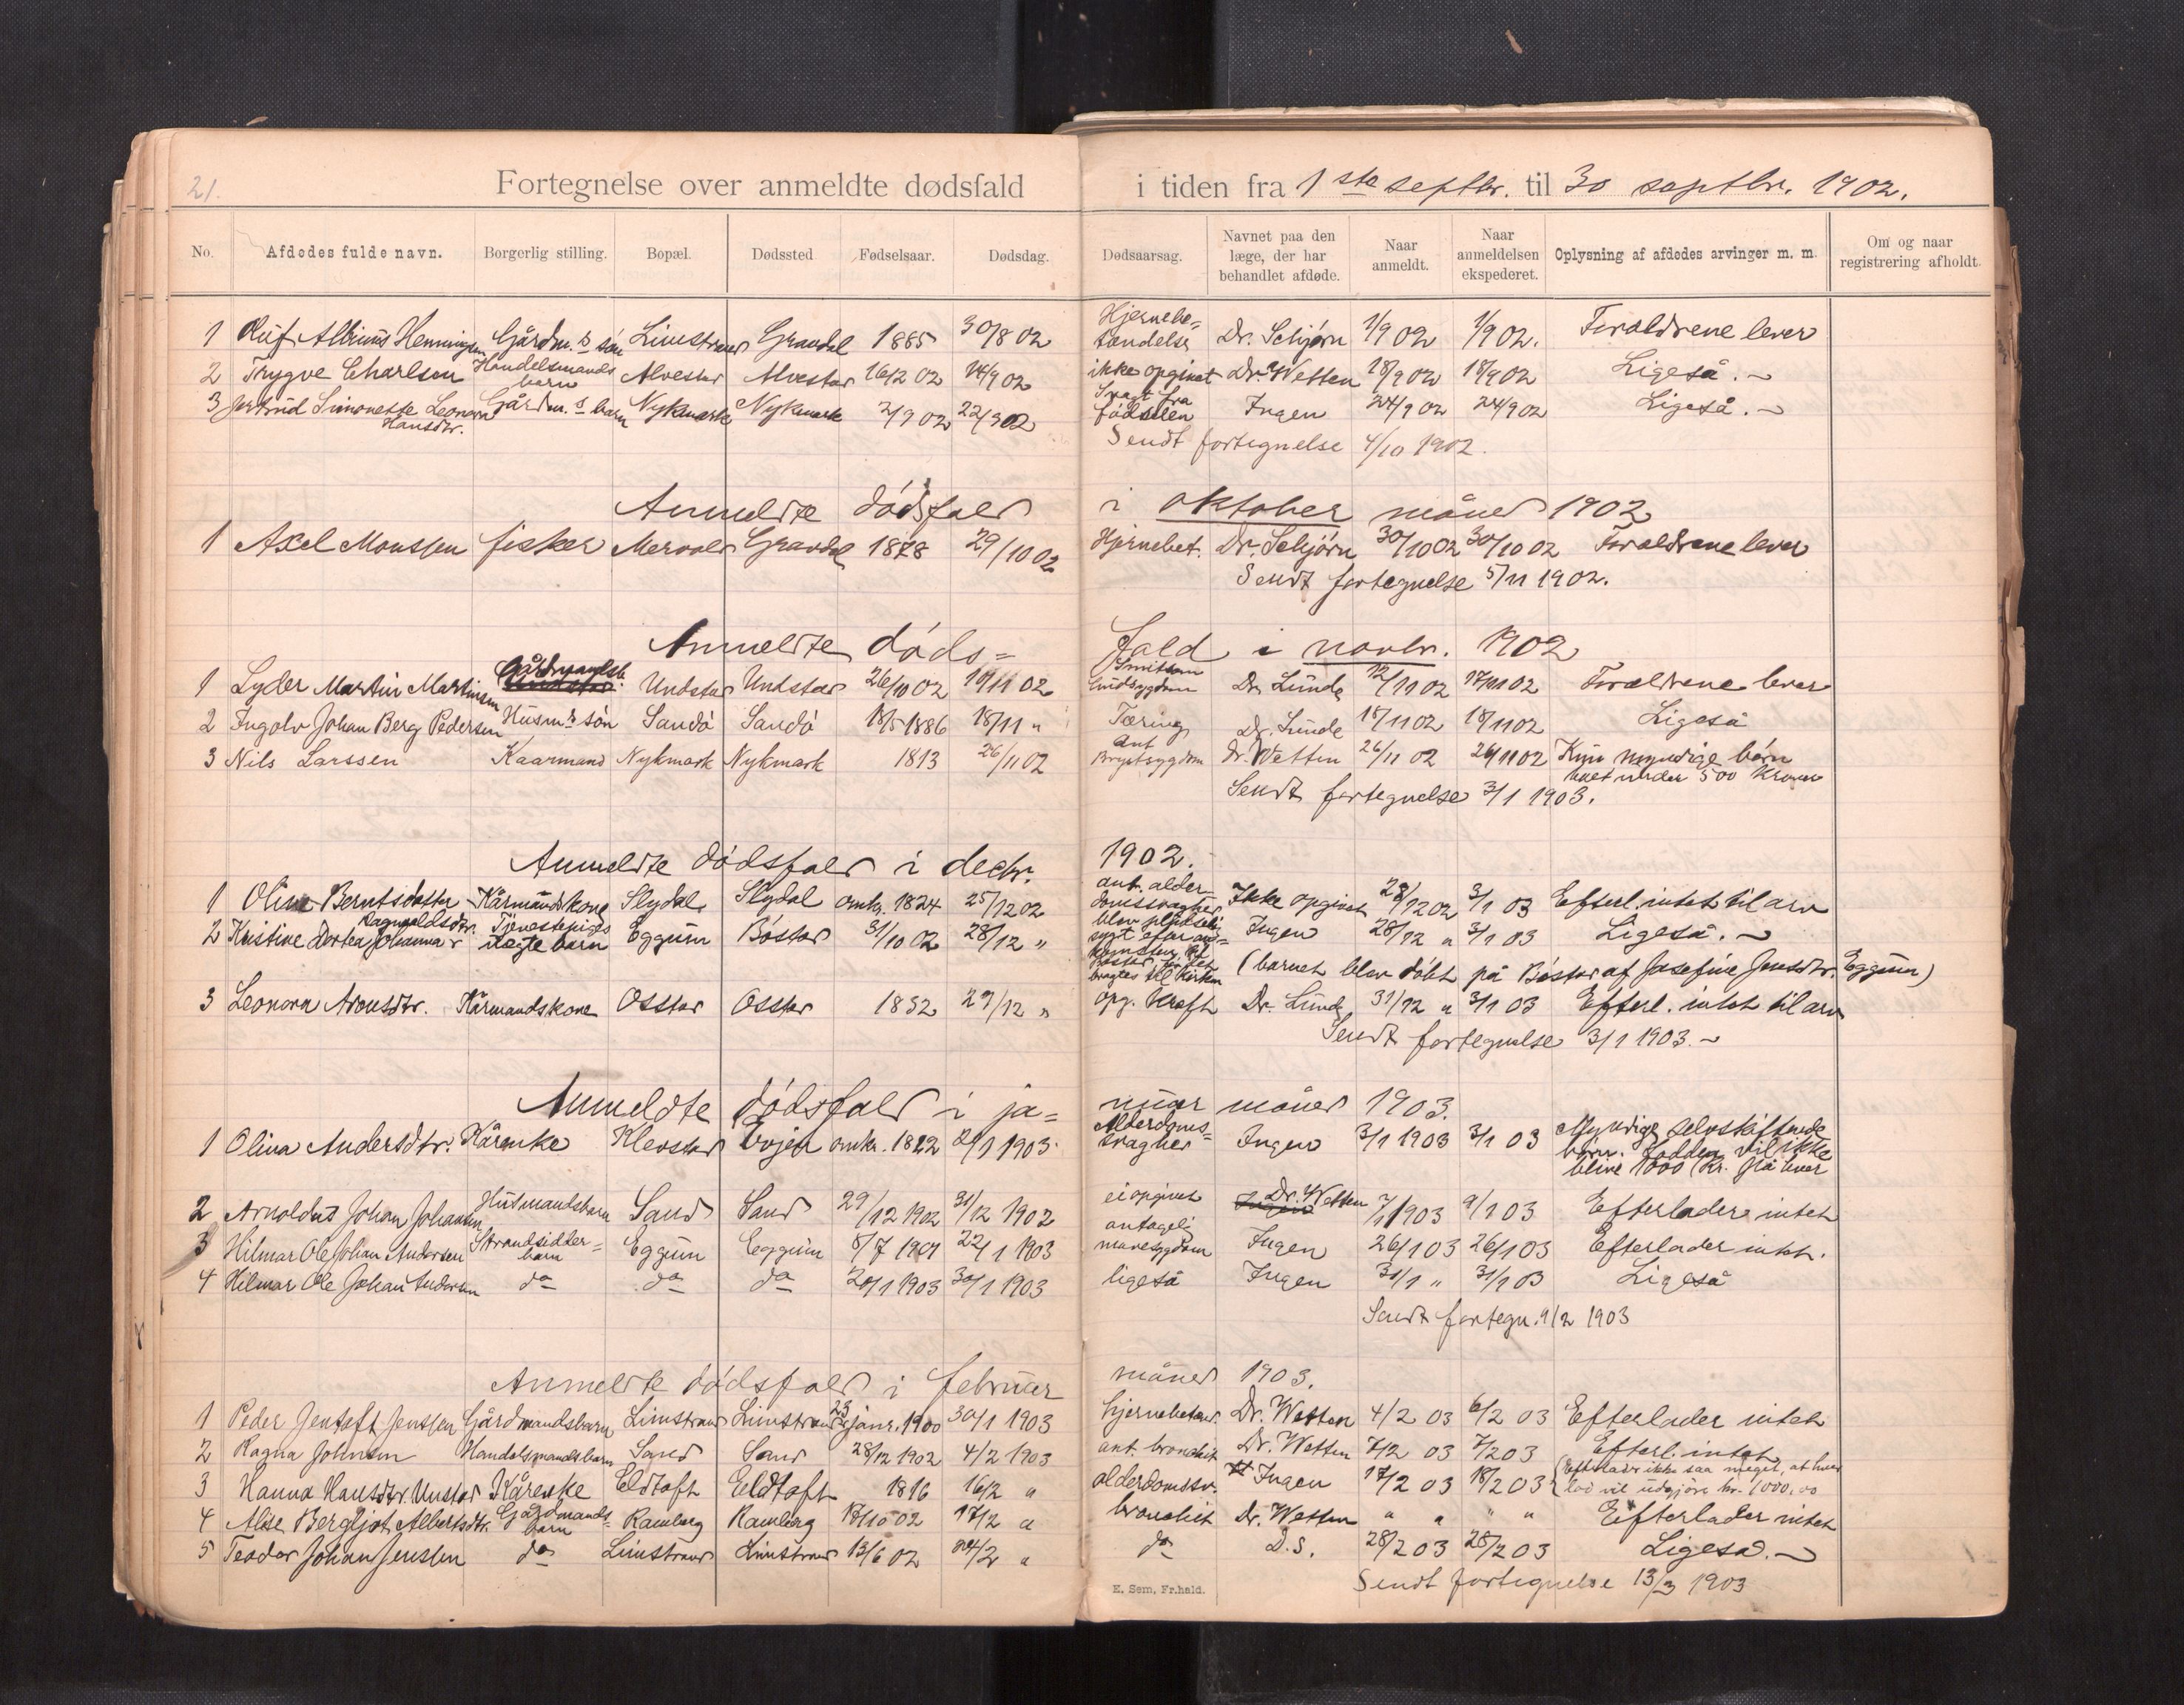 21.
Fortegnelse over anmeldte dødsfald i tiden fra 1ste septbr. til 30 septbr. 1902.
No. Afdødes fulde navn. Borgerlig stilling. Bopæl. Dødssted Fødselsaar. Dødsdag. Dødsaarsag. Navnet paa den læge, der har behandlet afdøde. Naar anmeldt. Naar anmeldelsen ekspederet. Oplysning af afdødes arvinger m. m. Om og naar registrering afholdt.
1 Oluf Henningsen Gårdm.s søn Limstrand Gravdal 1885 30/8 02 Hjernebetændelse Dr. Schjørn 1/9 02 1/9 02. Forældrene lever
2 Trygve Charlsen Handelsmands barn Alvestad Alvestad 16/2 02 14/9 02 ikke opgivet Dr. Wetten 18/9 02 18/9 02 Ligeså.
3 Jertrud Simonette Leonora Hansdtr. Gårdm.s barn Nykmark Nykmark 2/9 02 22/9 02 Svagt fra fødselen Ingen 24/9 02 24/9 02 Ligeså.
Sendt fortegnelse 4/10 1902.
Anmeldte dødsfald i oktober måned 1902
1 Axel Monssen fisker Mervold Gravdal 1878 29/10 02 Hjernebet. Dr. Schjørn 30/10 02 30/10 02 Forældrene lever
Sendt fortegnelse 5/11 1902.
Anmeldte dødsfald i novbr. 1902
1 Lyder Martin Martinsen Gårdmandsb. Undstad Undstad 26/10 02 10/11 02 Smitsom hudsygdom Dr. Lunde 12/11 02 17/11 02 Forældrene lever
2 Ingolv Johan Berg Pedersen Husm.s søn Sandø Sandø 18/5 1886 18/11 " Tæring Dr. Lunde 18/11 02 18/11 02 Ligeså
3 Nils Larssen Kaarmand Nykmark Nykmark 1813 26/11 02 Ant brystsygdom Dr. Wetten 26/11 02 26/11 02 Kun myndige børn boet under 500 kroner
Sendt fortegnelse 3/1 1903.
Anmeldte dødsfald i decbr. 1902.
1 Oline Berntsdatter Kårmandskone Slydal Slydal omkr. 1824 25/12 02 ant. alderdomssvaghed Ikke opgivet 28/12 02 3/1 03 Efterl. intet til arv
2 Kristine Dortea Johanna Ragnvaldsdtr. Tjenestepiges uægte barn Eggum Bøstad 31/10 02 28/12 " blev pludselig sygt efter ankomsten til Bøstad for det bragtes til kirken Ingen 28/12 " 3/1 03 Ligeså.
(barnet blev døbt på Bøstad af Josefine Jensdtr. Eggum)
3 Leonora Aronsdtr. Kårmandskone Osstad Osstad 1832 29/12 " opg. Kræft Dr. Lunde 31/12 " 3/1 03 Efterl. intet til arv
Sendt fortegnelse 3/1 1903.
Anmeldte dødsfald i januar måned 1903.
1 Olina Andersdtr. Kårenke Klevstad Evjen omkr. 1822 2/1 1903. Alderdomssvaghed Ingen 3/1 1903 3/1 03 Myndige selvskiftende børn. Lodden vil ikke blive 1000 Kr. på hver
2 Arnoldus Johan Johansen Husmandsbarn Sand Sand 29/12 1902 31/12 1902 ei opgivet Dr. Wetten 7/1 1903 9/1 03 Efterlader intet
3 Hilmar Ole Johan Andersen Strandsidderbarn Eggum Eggum 8/7 1901 22/1 1903 antagelig mavesygdom Ingen 26/1 03 26/1 03 Efterlader intet.
4 Hilmar Ole Johan Andersen do do do 20/1 1903 30/1 1903 ligeså Ingen 31/1 " 31/1 03 Ligeså
Sendt fortegn. 9/2 1903
Anmeldte dødsfald i februar måned 1903.
1 Peder Jentoft Jenssen Gårdmandsbarn Limstrand Limstrand 23 janr. 1900 30/1 1903 hjernebetænd. Dr. Wetten 4/2 03 6/2 03 Efterlader intet
2 Ragna Johnsen Handelsmandsbarn Sand Sand 28/12 1902 4/2 1903 ant. bronchit Dr. Wetten 7/2 03 7/2 03 Efterl. intet
3 Hanna Hansdtr. Unstad Kårenke Eldtoft Eldtoft 1816 16/2 " alderdomssv. Ingen 17/2 03 18/2 03 (Efterlader ikke saa meget, at hver lod vil udgjøre kr. 1000,00
4 Alise Bergljot Albertsdtr. Gårdmandsbarn Ramberg Ramberg 18/10 02 17/2 " bronchit Dr. Wetten " " " " Efterlader intet
5 Teodor Johan Jenssen do Limstrand Limstrand 13/6 02 24/2 " do D.S. 28/2 03 28/2 03 Ligeså.
Sendt fortegnelse 13/3 1903
E. Sem, Fr.hald.